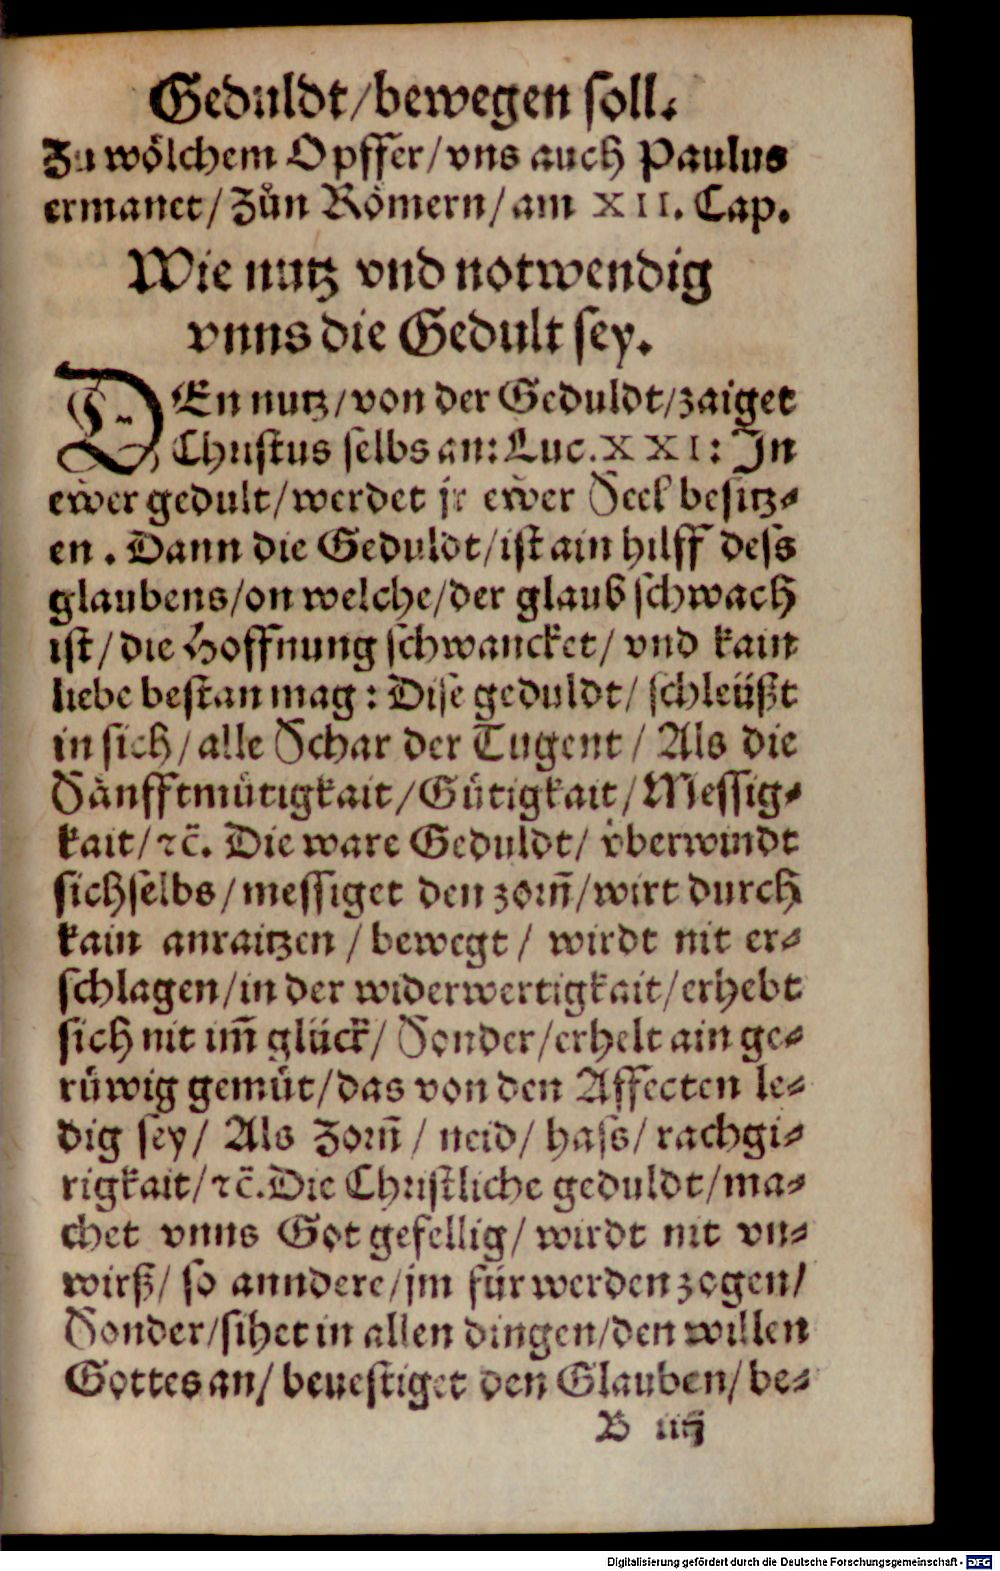 Geduldt/bewegen soll.
Zu wölchem Opffer/vns auch Paulus
ermanet/Zůn Römern/am XII. Cap.
Wie nutz vnd notwendig
vnns die Gedult sey.
DEn nutz/von der Geduldt/zaiget
Christus selbs an: Luc. XXI: In
ewer gedult/werdet jr ewer Seel besitz⸗
en. Dann die Geduldt/ist ain hilff dess
glaubens/on welche/der glaub schwach
ist/die Hoffnung schwancket/vnd kain
liebe bestan mag: Dise geduldt/schleüßt
in sich/alle Schar der Tugent/Als die
Sänfftmütigkait/Gütigkait/Messig⸗
kait/ꝛc̄. Die ware Geduldt/vͤberwindt
sichselbs/messiget den zorn̄/wirt durch
kain anraitzen/bewegt/wirdt nit er⸗
schlagen/in der widerwertigkait/erhebt
sich nit im̄ glück/Sonder/erhelt ain ge⸗
rüwig gemüt/das von den Affecten le⸗
dig sey/Als Zorn̄/neid/hass/rachgi⸗
rigkait/ꝛc̄. Die Christliche geduldt/ma⸗
chet vnns Got gefellig/wirdt nit vn⸗
wirß/so anndere/jm für werden zogen/
Sonder/sihet in allen dingen/den willen
Gottes an/beuestiget den Glauben/be⸗
B iiij
Digitalisierung gefördert durch die Deutsche Forschungsgemeinschaft - DFG